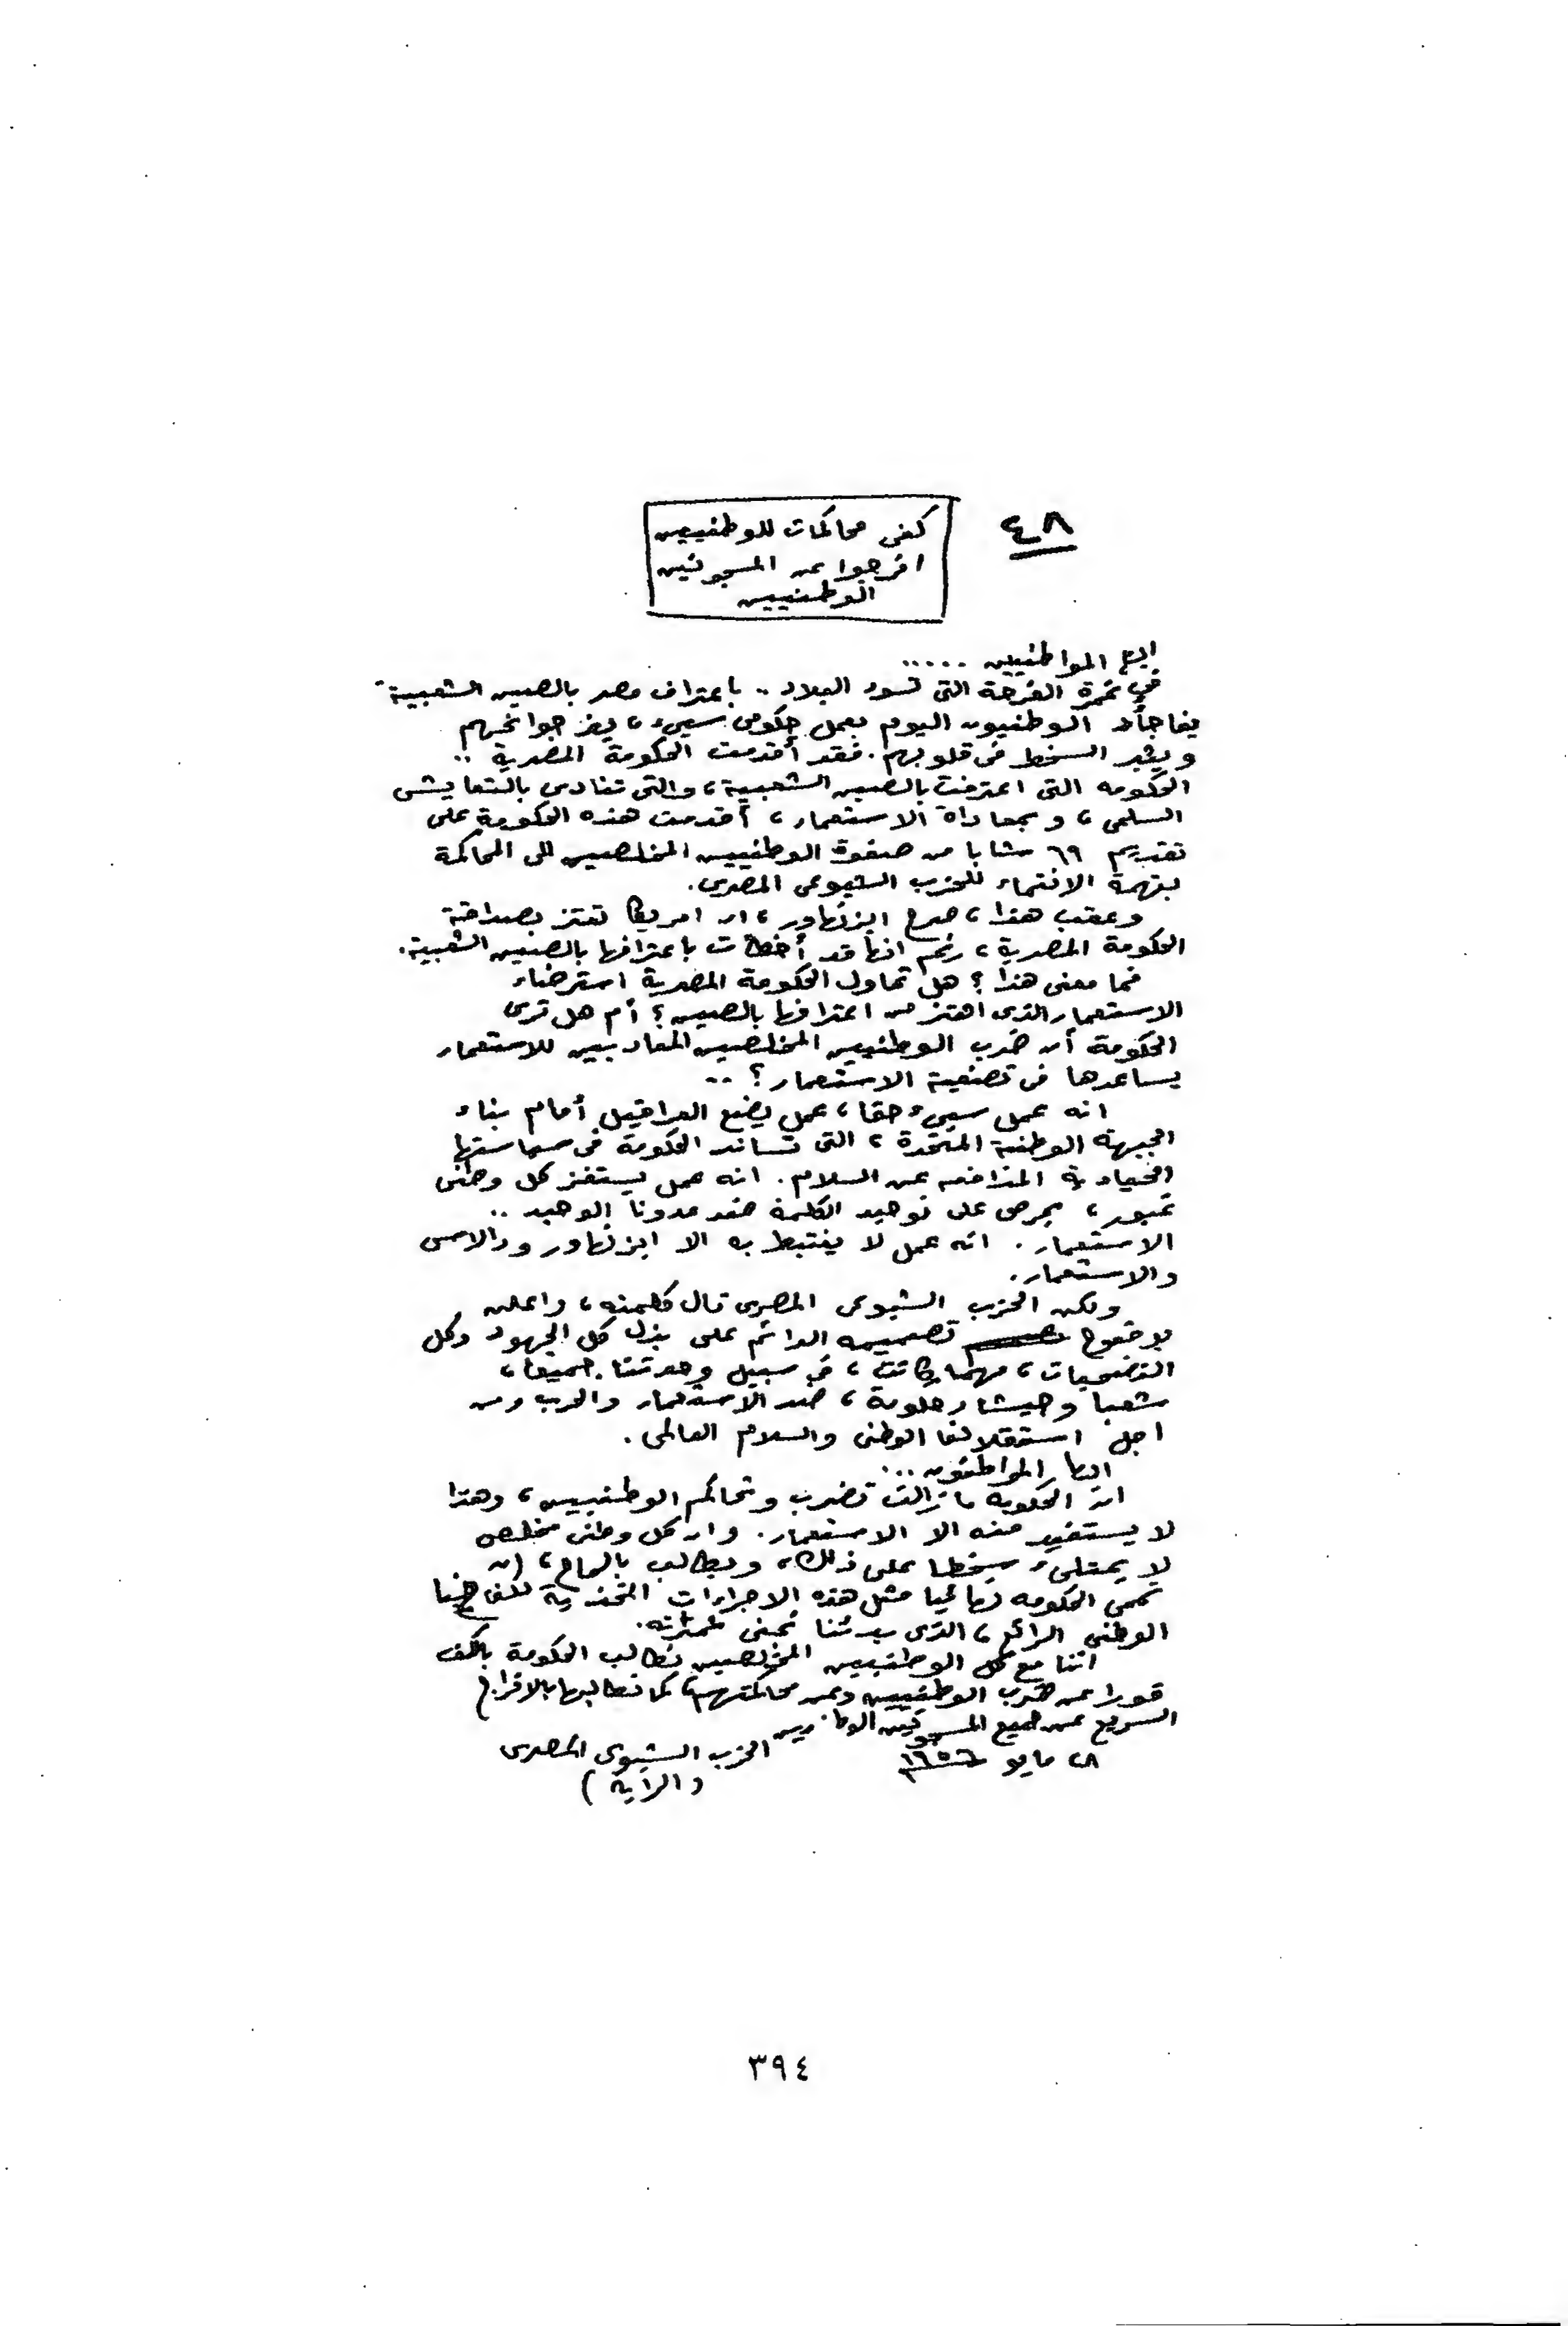 ٤٨
كفى محاكمات للوطنيين
افرجوا عن المسجونين
الوطنيين
ايها المواطنين .....
في غمرة الفرحة التى تسود البلاد .. باعتراف مصر بالصين الشعبية
يفاجأ الوطنيون اليوم بعمل حكومى سيىء ، يهز جوانحهم
ويثير السخط فى قلوبهم . فقد أقدمت الحكومة المصرية ..
الحكومه التى اعترفت بالصين الشعبية ، والتى تنادى بالتعايش
السلمى ، وبمعاداة الاستعمار ، أقدمت هذه الحكومة على
تقديم ٦٩ شابا من صفوة الوطنيين المخلصين الى المحاكمة
بتهمة الانتماء للحزب الشيوعى المصرى .
وعقب هذا ، صرح ايزنهاور ، ان امريكا تعتز بصداقة
الحكومة المصرية ، رغم انها قد أخطأت باعترافها بالصين الشعبية .
فما معنى هذا ؟ هل تحاول الحكومة المصرية استرضاء
الاستعمار الذى اهتز من اعترافها بالصين ؟ أم هل ترى
الحكومة أن ضرب الوطنيين المخلصين المعاديين للاستعمار
يساعدها فى تصفية الاستعمار ؟ ..
انه عمل سيىء حقا ، عمل يضع العراقيل أمام بناء
الجبهة الوطنية المتحدة ، التى تساند الحكومة فى سياستها
الحيادية المدافعه عن السلام . انه عمل يستفز كل وطنى
غيور ، يحرص على توحيد الكلمة ضد عدونا الوحيد ..
الاستعمار . انه عمل لا يغتبط به الا ايزنهاور ودالاس
والاستعمار .
ولكن الحزب الشيوعى المصرى قال كلمته ، واعلن
بوضوح تصميمه الدائم على بذل كل الجهود وكل
التضحيات ، مهما كانت ، فى سبيل وحدتنا جميعا ،
شعبا وجيشا وحكومة ، ضد الاستعمار والحرب ومن
اجل استقلالنا الوطنى والسلام العالمى .
ايها المواطنون ...
ان الحكومه مازالت تضرب وتحاكم الوطنيين ، وهذا
لا يستفيد منه الا الاستعمار . وان كل وطنى مخلص
لا يمتلىء سخطا على ذلك ، ويطالب بالحاح ، ان
تمحى الحكومه نهائيا مثل هذه الاجراءات المخزية لكفاحنا
الوطنى الرائع ، الذى بدئنا نجنى ثمراته .
اننا مع كل الوطنيين المخلصين نطالب الحكومة بالكف
فورا عن ضرب الوطنيين وعن محاكمتهم ، كما نطالبها بالافراج
السريع عن جميع المسجونين الوطنيين
٢٨ مايو ١٩٥٦
الحزب الشيوعى المصرى
( الراية )
٣٩٤